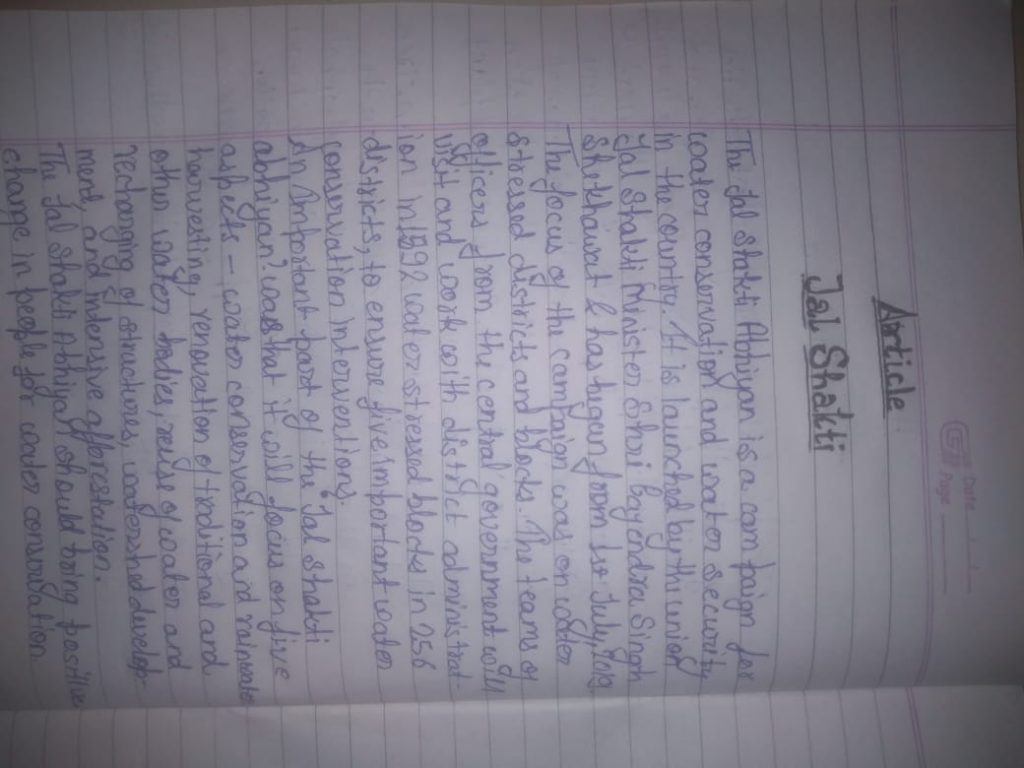 Date
Page
Article
Jal Shakti
The Jal Shakti Abhiyan is a campaign for
water conservation and water security
in the country. It is launched by the union
Jal Shakti Minister Shri Gajendra Singh
Shekhawat & has begun from 1st July, 2019
The focus of the campaign was on water
stressed districts and blocks. The teams of
officers from the central government will
visit and work with district administrat-
ion in 1592 water stressed blocks in 256
districts, to ensure five important water
conservation interventions.
An Important part of the "Jal Shakti
abhiyan" was that it will focus on five
aspects – water conservation and rainwater
harvesting, renovation of traditional and
other water bodies, reuse of water and
recharging of structures, watershed develop-
ment, and intensive afforestation.
The Jal Shakti Abhiyan should bring positive
change in people for water conservation